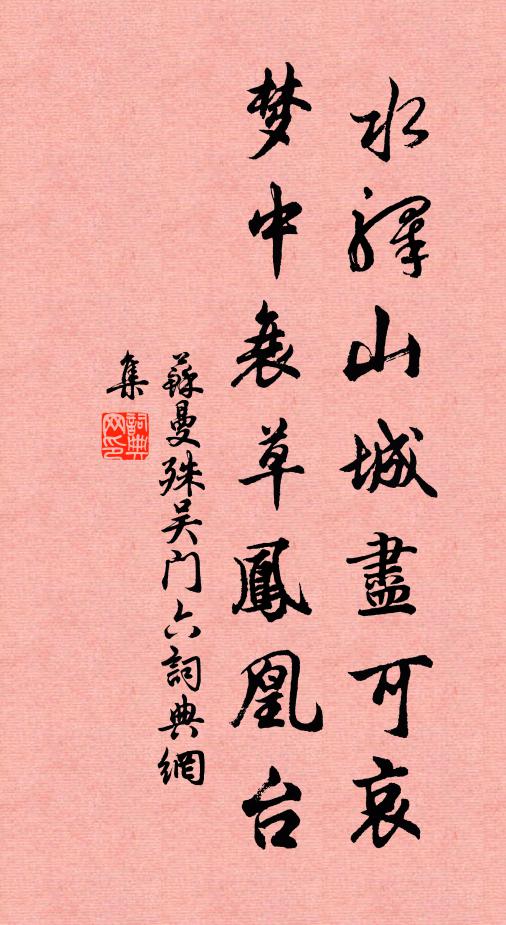 水驛山城盡可哀
梦中衰草鳳凰台
蘇曼殊吴门六詞典網
集
詞典網印